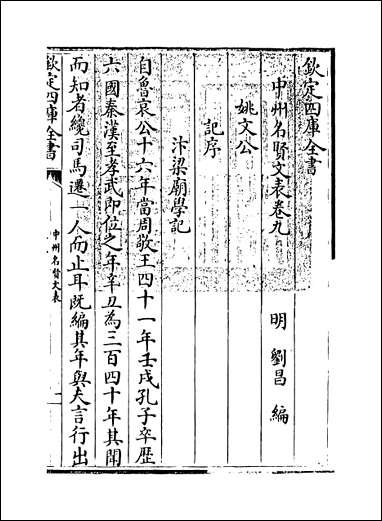 欽定四庫全書
中州名賢文表卷九
明 劉昌 編
姚文公
記序
汴梁廟學記
自魯哀公十六年當周敬王四十一年壬戌孔子卒歷
六國秦漢至孝武即位之年辛丑為三百四十年其聞
而知者纔司馬遷一人而止耳既編其年與夫言行出
欽定四庫全書
中州名賢文表
一